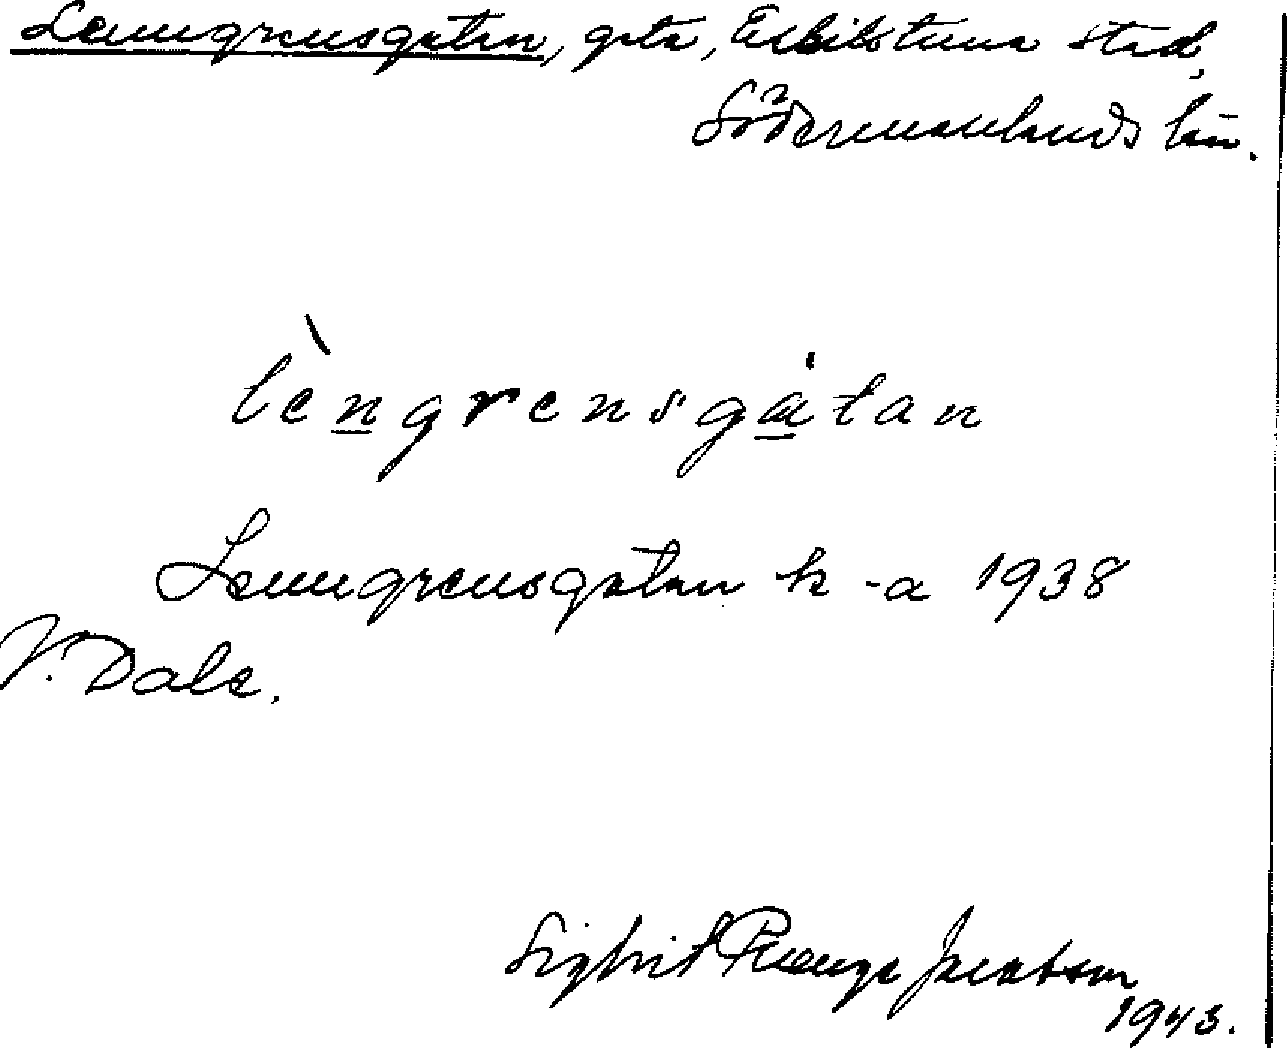 Lenngrensgatan, gata, Eskilstuna stad,
Södermanlands län.
lèngrensgatan
Lenngrensgatan k -a 1938
V. Dals.
Sigbrit Plænge Jacobson
1943.